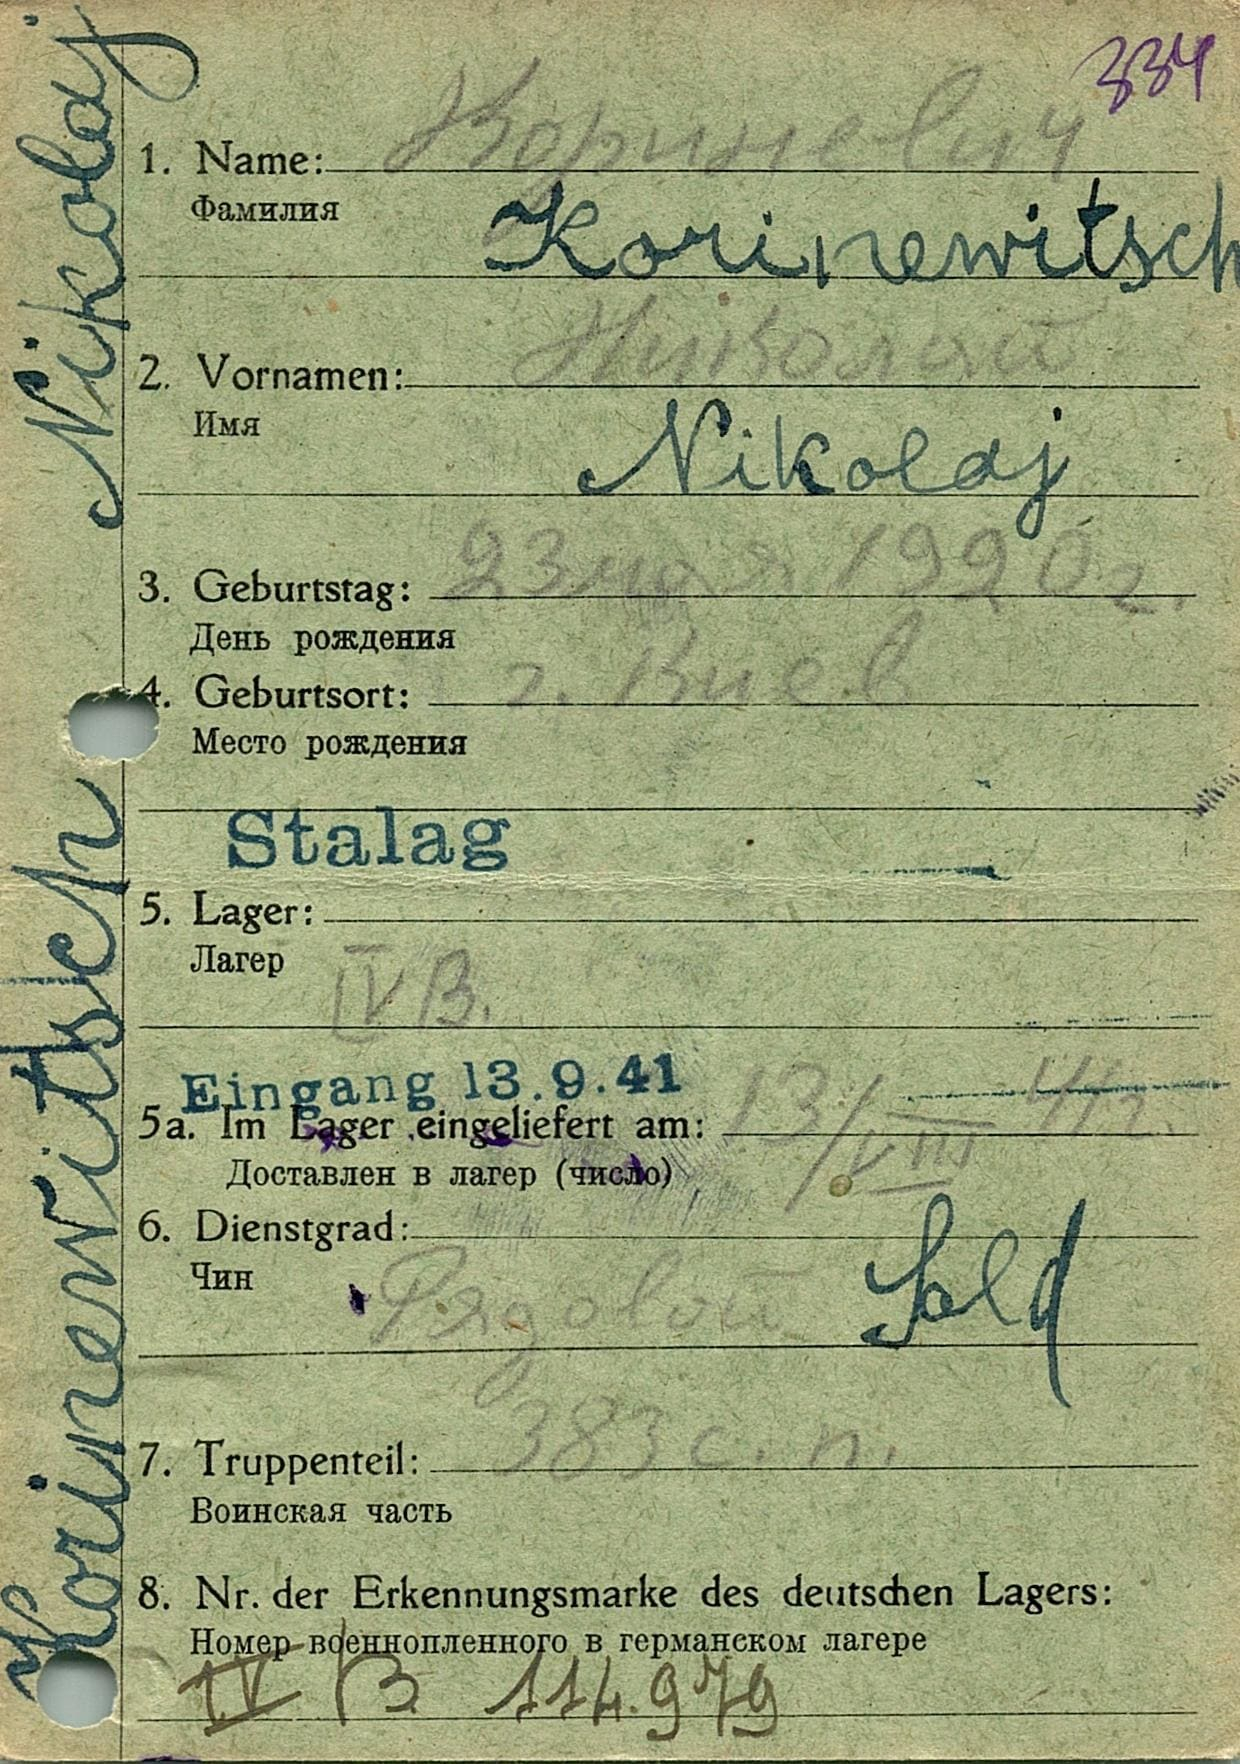 334
1. Name: Кориневич
Фамилия
Korinewitsch
2. Vornamen: Николай
Имя
Nikolaj
3. Geburtstag: 23 1920 г.
День рождения
4. Geburtsort: г. Киев
Место рождения
Stalag
5. Lager:
Лагер
IV B.
Eingang 13.9.41
5a. Im Lager eingeliefert am: 13/VIII 41 г.
Доставлен в лагер (число)
6. Dienstgrad:
Чин
Рядовой Sold
7. Truppenteil: 383 с. п.
Воинская часть
8. Nr. der Erkennungsmarke des deutschen Lagers:
Номер военнопленного в германском лагере
IV B 114.979
Korinewitsch Nikolaj